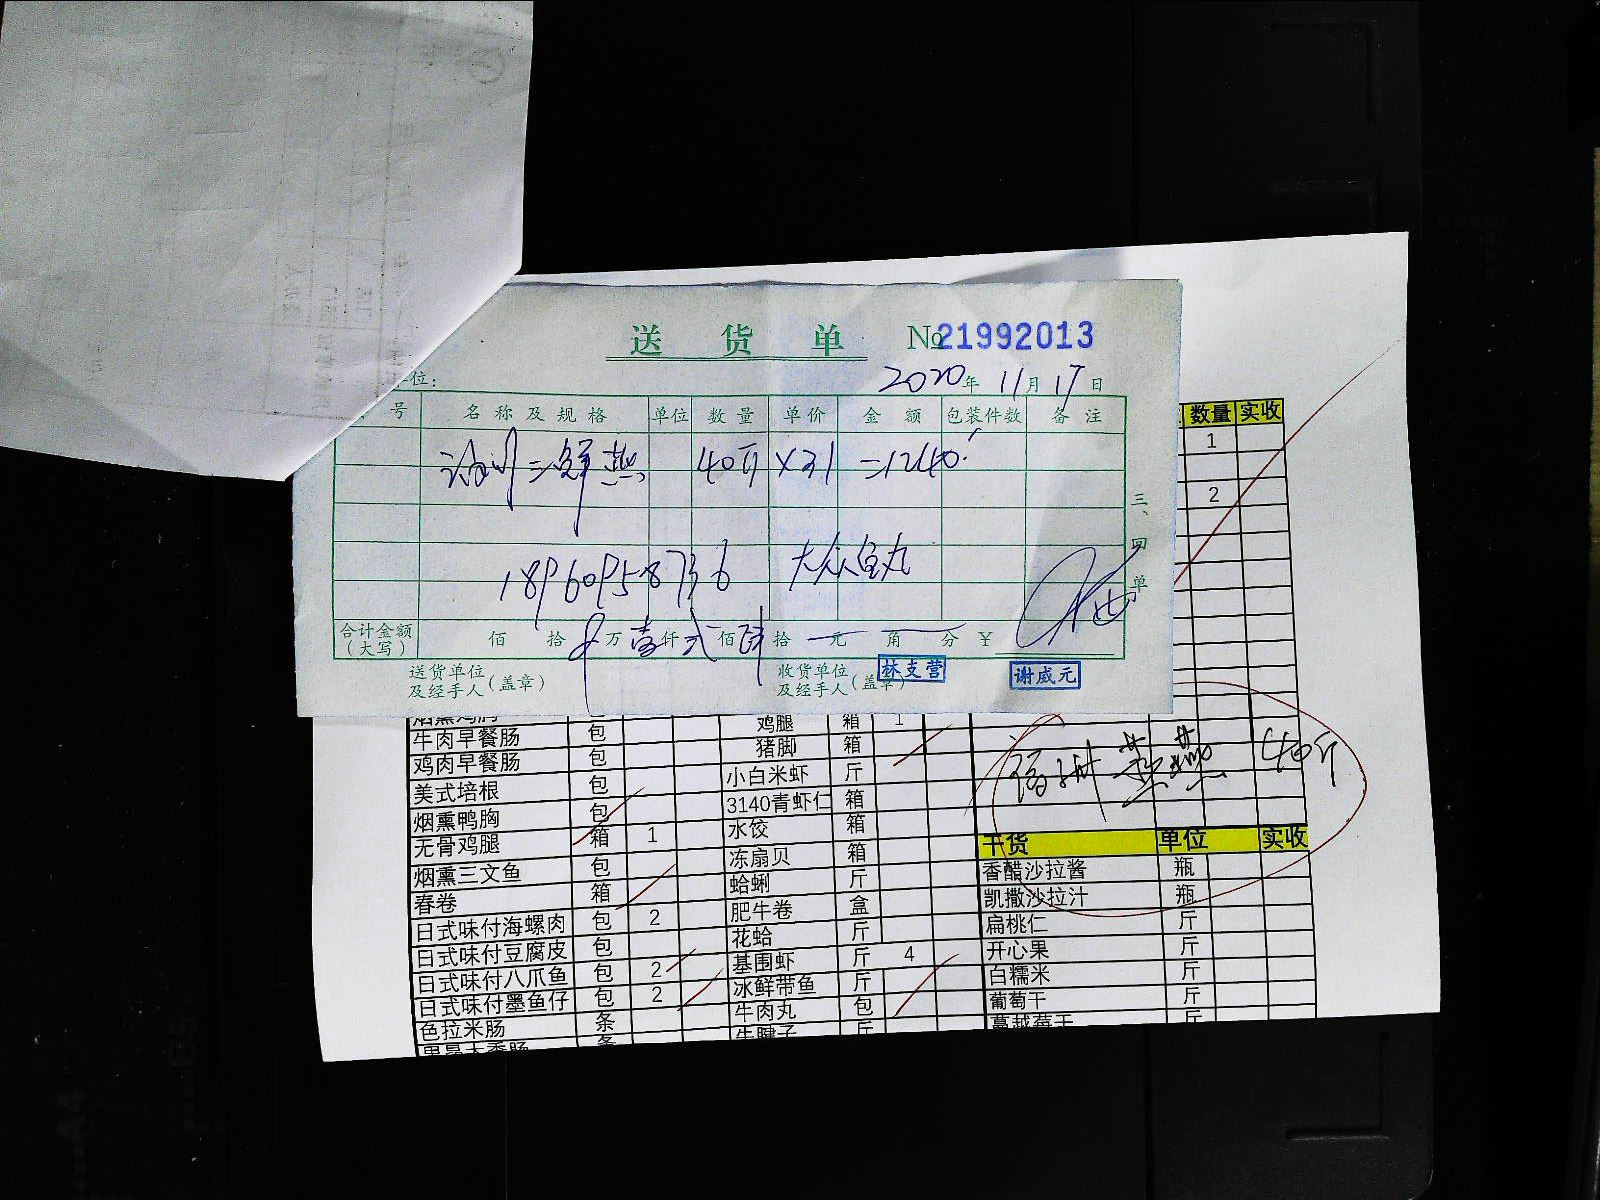 送货单 №21992013
位:
2020年11月17日
号 名称及规格 单位 数量 单价 金额 包装件数 备注
三鲜燕 40 ×31 =1240.
18960958736 大众鱼丸
三、四单
合计金额(大写) 佰 拾 万壹仟弍佰 拾 元 角 分 ¥
送货单位及经手人(盖章) 收货单位及经手人(盖章)
林支营 谢威元
数量 实收
1
2
烟熏鸡胸 包 鸡腿 箱 1
牛肉早餐肠 包 猪脚 箱
鸡肉早餐肠 包 小白米虾 斤
美式培根 包 3140青虾仁 箱
烟熏鸭胸 包 水饺 箱
无骨鸡腿 箱 1 冻扇贝 箱
烟熏三文鱼 包 蛤蜊 斤
春卷 箱 肥牛卷 盒
日式味付海螺肉 包 2 花蛤 斤
日式味付豆腐皮 包 基围虾 斤 4
日式味付八爪鱼 包 2 冰鲜带鱼 斤
日式味付墨鱼仔 包 2 牛肉丸 包
色拉米肠 条 牛腱子 斤
福州燕 40斤
干货 单位 实收
香醋沙拉酱 瓶
凯撒沙拉汁 瓶
扁桃仁 斤
开心果 斤
白糯米 斤
葡萄干 斤
蔓越莓干 斤
A4